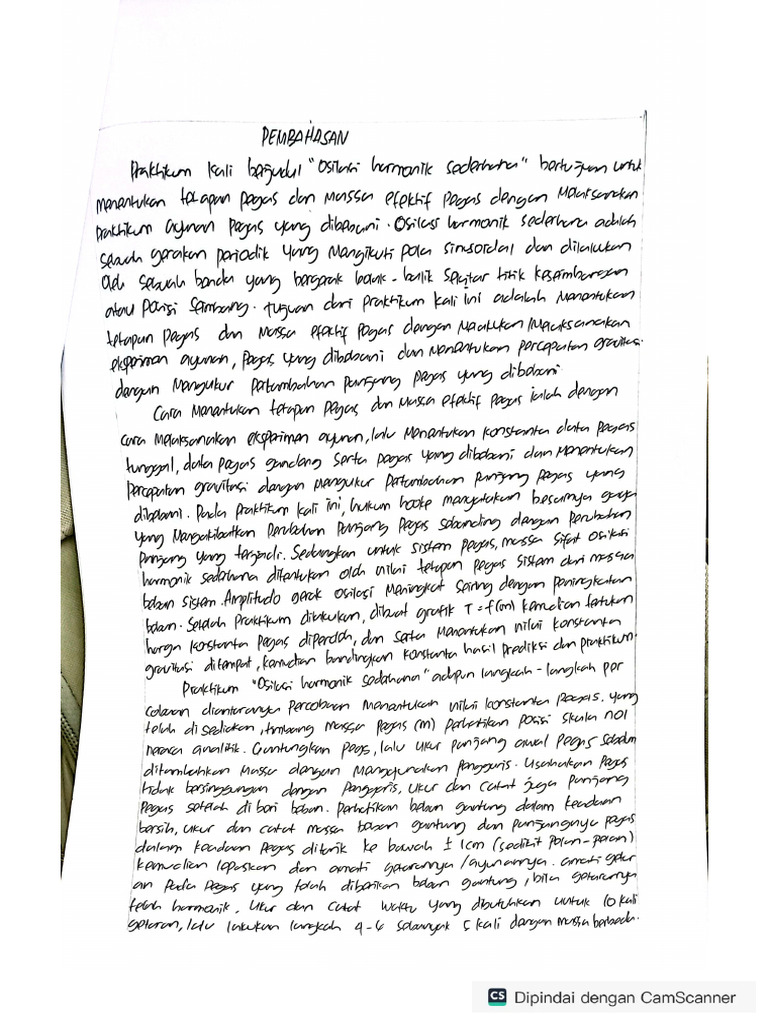 PEMBAHASAN
Praktikum kali berjudul "Osilasi harmonik sederhana" bertujuan untuk
menentukan tetapan pegas dan massa efektif pegas dengan melaksanakan
praktikum ayunan pegas yang dibebani. Osilasi harmonik sederhana adalah
sebuah gerakan periodik yang mengikuti pola sinusordal dan dilakukan
oleh sebuah benda yang bergerak bolak-balik sekitar titik keseimbangan
atau posisi seimbang. tujuan dari praktikum kali ini adalah menentukan
tetapan pegas dan massa efektif pegas dengan melakukan/melaksanakan
eksperimen ayunan, pegas yang dibebani dan menentukan percepatan gravitasi
dengan mengukur pertambahan panjang pegas yang dibebani.
Cara menentukan tetapan pegas dan massa efektif pegas ialah dengan
cara melaksanakan eksperimen ayunan, lalu menentukan konstanta data pegas
tunggal, data pegas gandeng serta pegas yang dibebani dan menentukan
percepatan gravitasi dengan mengukur pertambahan panjang pegas yang
dibebani. Pada praktikum kali ini, hukum hooke menyatakan besarnya gaya
yang mengakibatkan perubahan panjang pegas sebanding dengan perubahan
panjang yang terjadi. Sedangkan untuk sistem pegas, massa sifat osilasi
harmonik sederhana ditentukan oleh nilai tetapan pegas sistem dari massa
beban sistem. Amplitudo gerak osilasi meningkat seiring dengan peningkatan
beban. Setelah praktikum dilakukan, dibuat grafik T = f(m) kemudian tentukan
harga konstanta pegas diperoleh, dan serta menentukan nilai konstanta
gravitasi ditempat, kemudian bandingkan konstanta hasil prediksi dan praktikum.
Praktikum "Osilasi harmonik sederhana" adapun langkah-langkah per
cobaan diantaranya percobaan menentukan nilai konstanta pegas. yang
telah disediakan, timbang massa pegas (m) perhatikan posisi skala nol
neraca analitik. Gantungkan pegas, lalu ukur panjang awal pegas sebelum
ditambahkan massa dengan menggunakan penggaris. Usahakan pegas
tidak bersinggungan dengan penggaris, ukur dan catat juga panjang
pegas setelah diberi beban. Perhatikan beban gantung dalam keadaan
bersih, ukur dan catat massa beban gantung dan panjangnya pegas
dalam keadaan pegas ditarik ke bawah ± 1cm (sedikit pelan-pelan)
kemudian lepaskan dan amati getarannya/ayunannya. amati getar
an pada pegas yang telah diberikan beban gantung, bila getarannya
telah harmonik, ukur dan catat waktu yang dibutuhkan untuk 10 kali
getaran, lalu lakukan langkah 4-6 sebanyak 5 kali dengan massa berbeda.
CS Dipindai dengan CamScanner